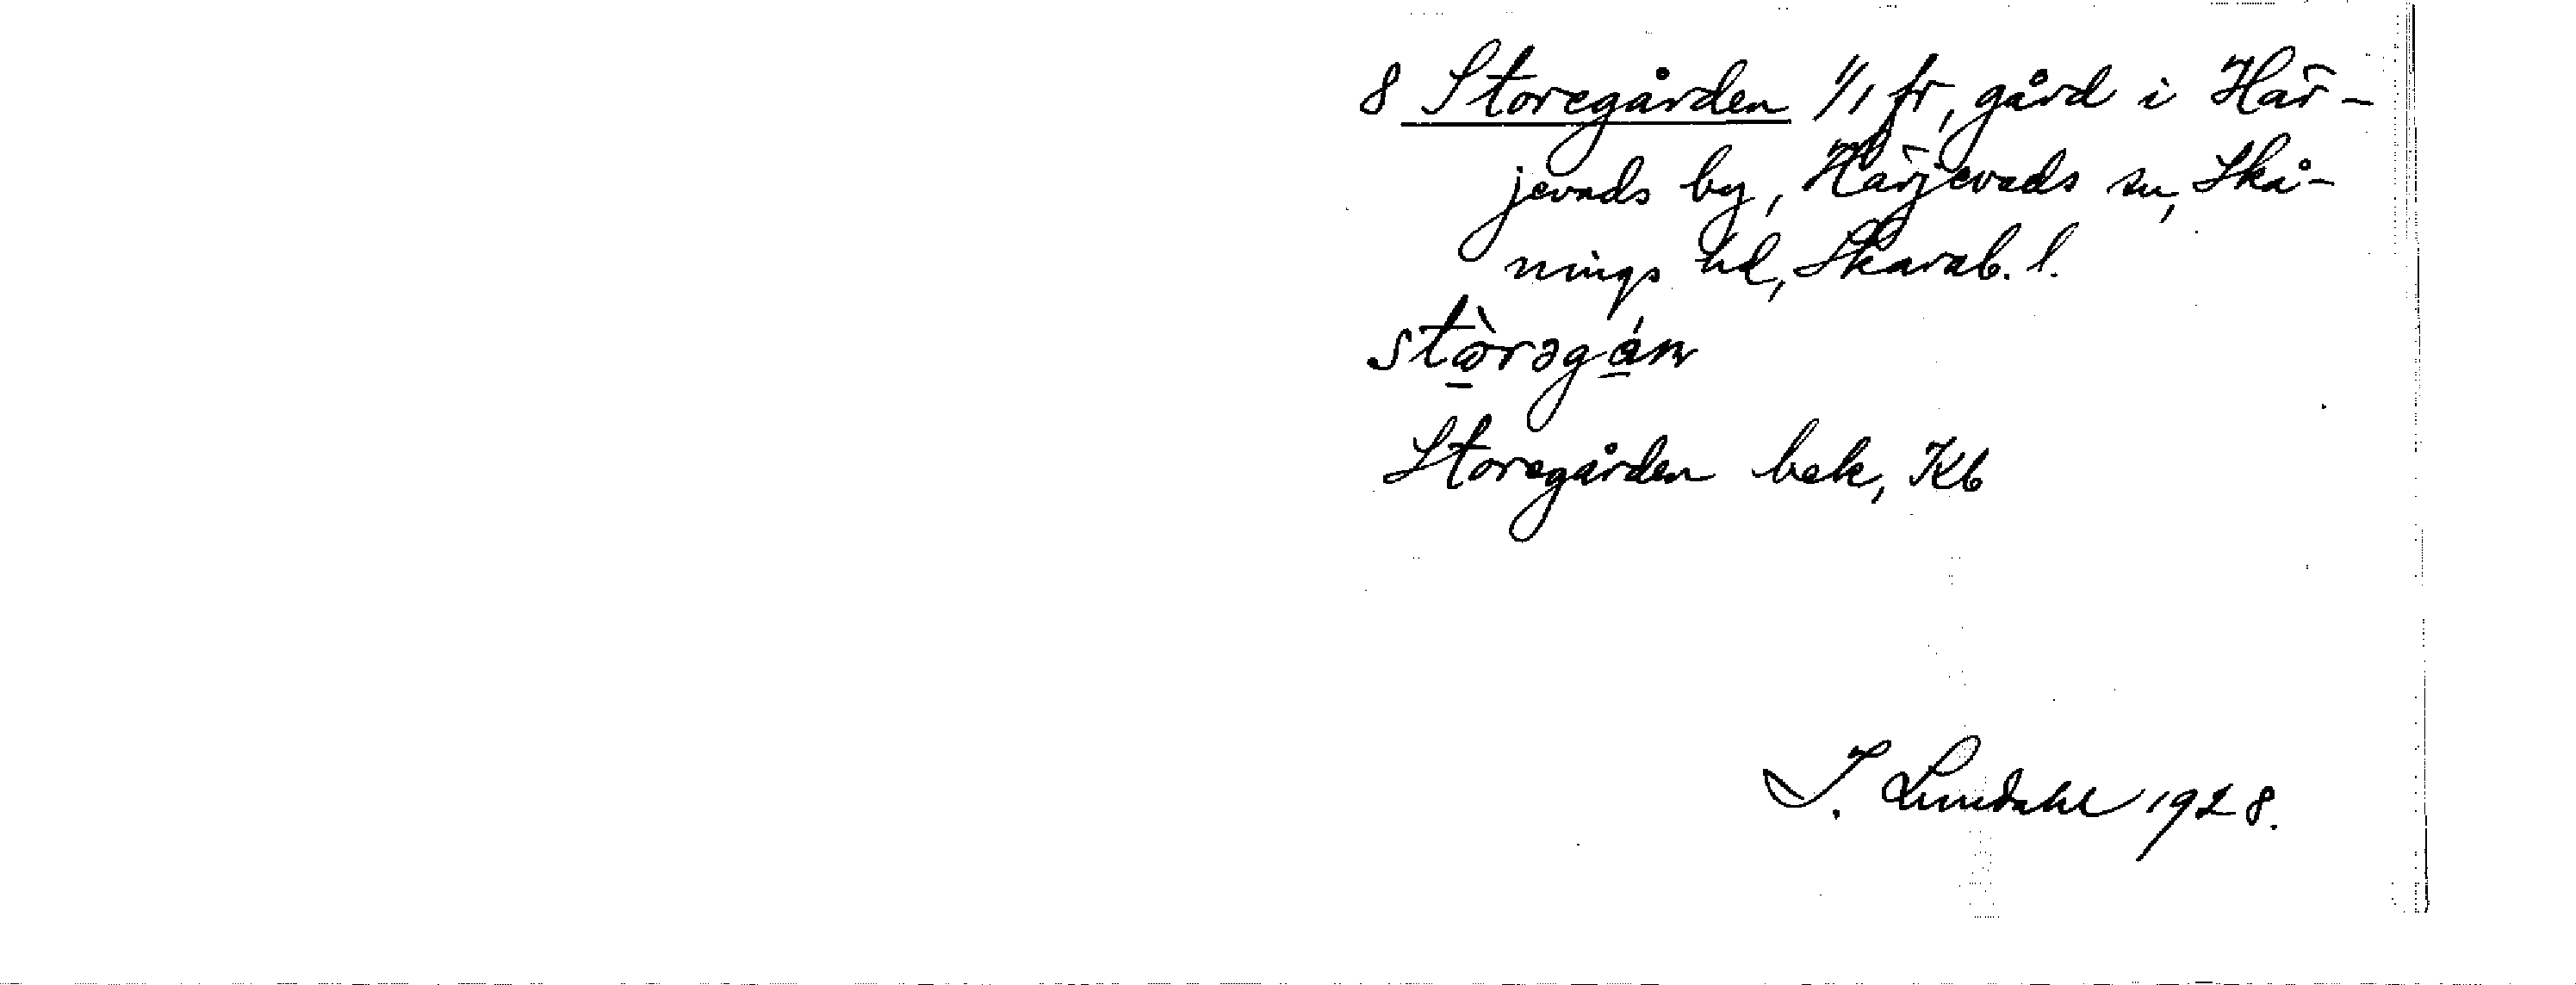 8 Storegården 1/1 fr, gård i Här-
jevads by, Härjevads sn, Skå-
nings hd, Skarab. l.
Storegården bek, Kb
J. Lundahl 1928.